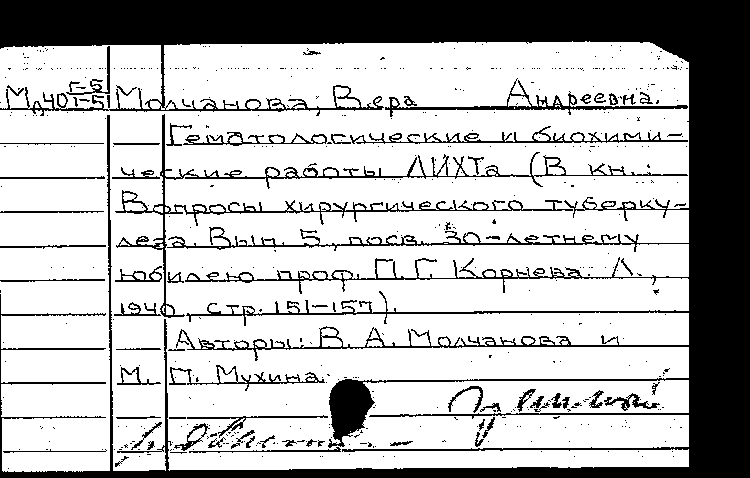 Мд40 Г-5 Молчанова, Вера Андреевна.
1-5
Гематологические и биохими-
ческие работы ЛИХТа (В кн.:
Вопросы хирургического туберку-
леза. Вып. 5, посв. 30-летнему
юбилею проф. П.Г. Корнева. Л.,
1940, стр. 151-157).
Авторы: В. А. Молчанова и
М. П. Мухина.